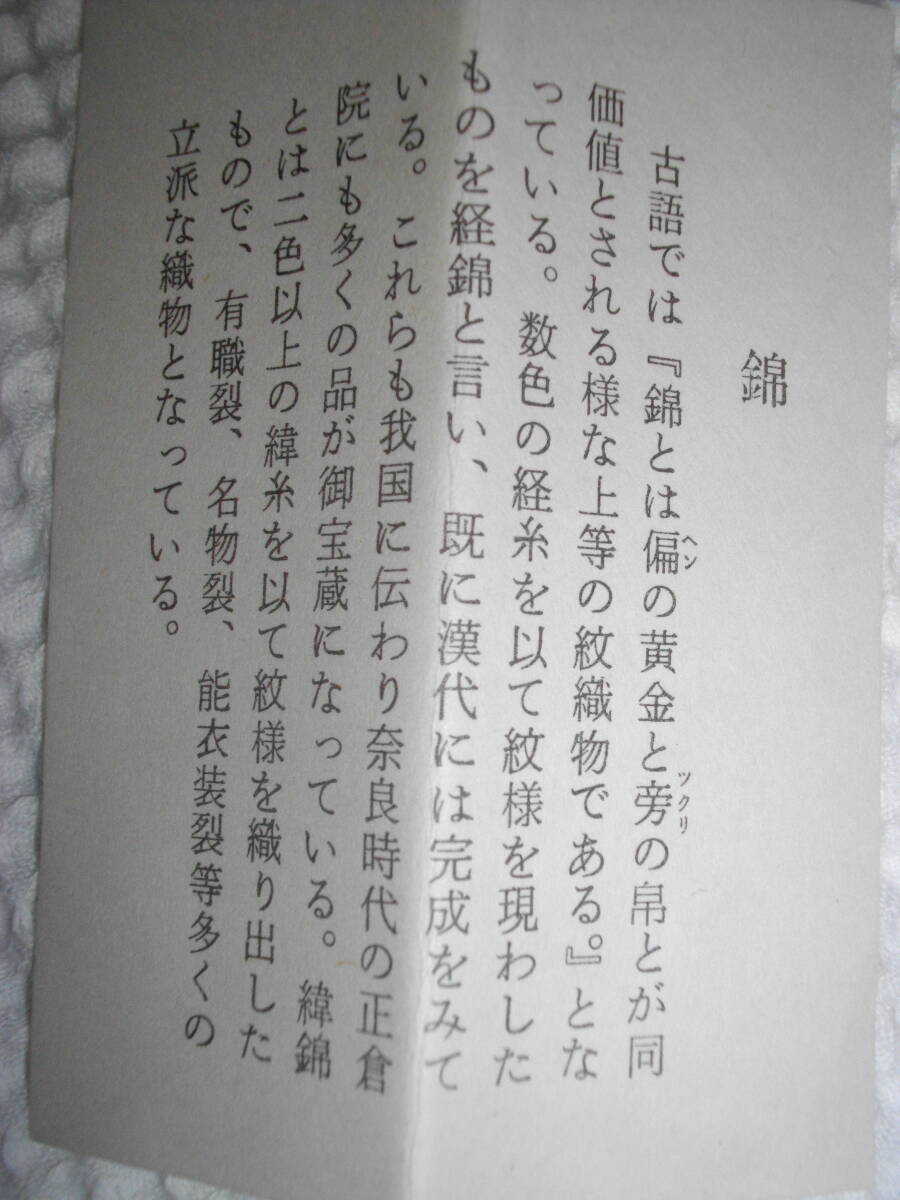 錦
古語では『錦とは偏の黄金と旁の帛とが同
ヘン
ツクリ
価値とされる様な上等の紋織物である。』とな
っている。数色の経糸を以て紋様を現わした
ものを経錦と言い、既に漢代には完成をみて
いる。これらも我国に伝わり奈良時代の正倉
院にも多くの品が御宝蔵になっている。緯錦
とは二色以上の緯糸を以て紋様を織り出した
もので、有職裂、名物裂、能衣装裂等多くの
立派な織物となっている。